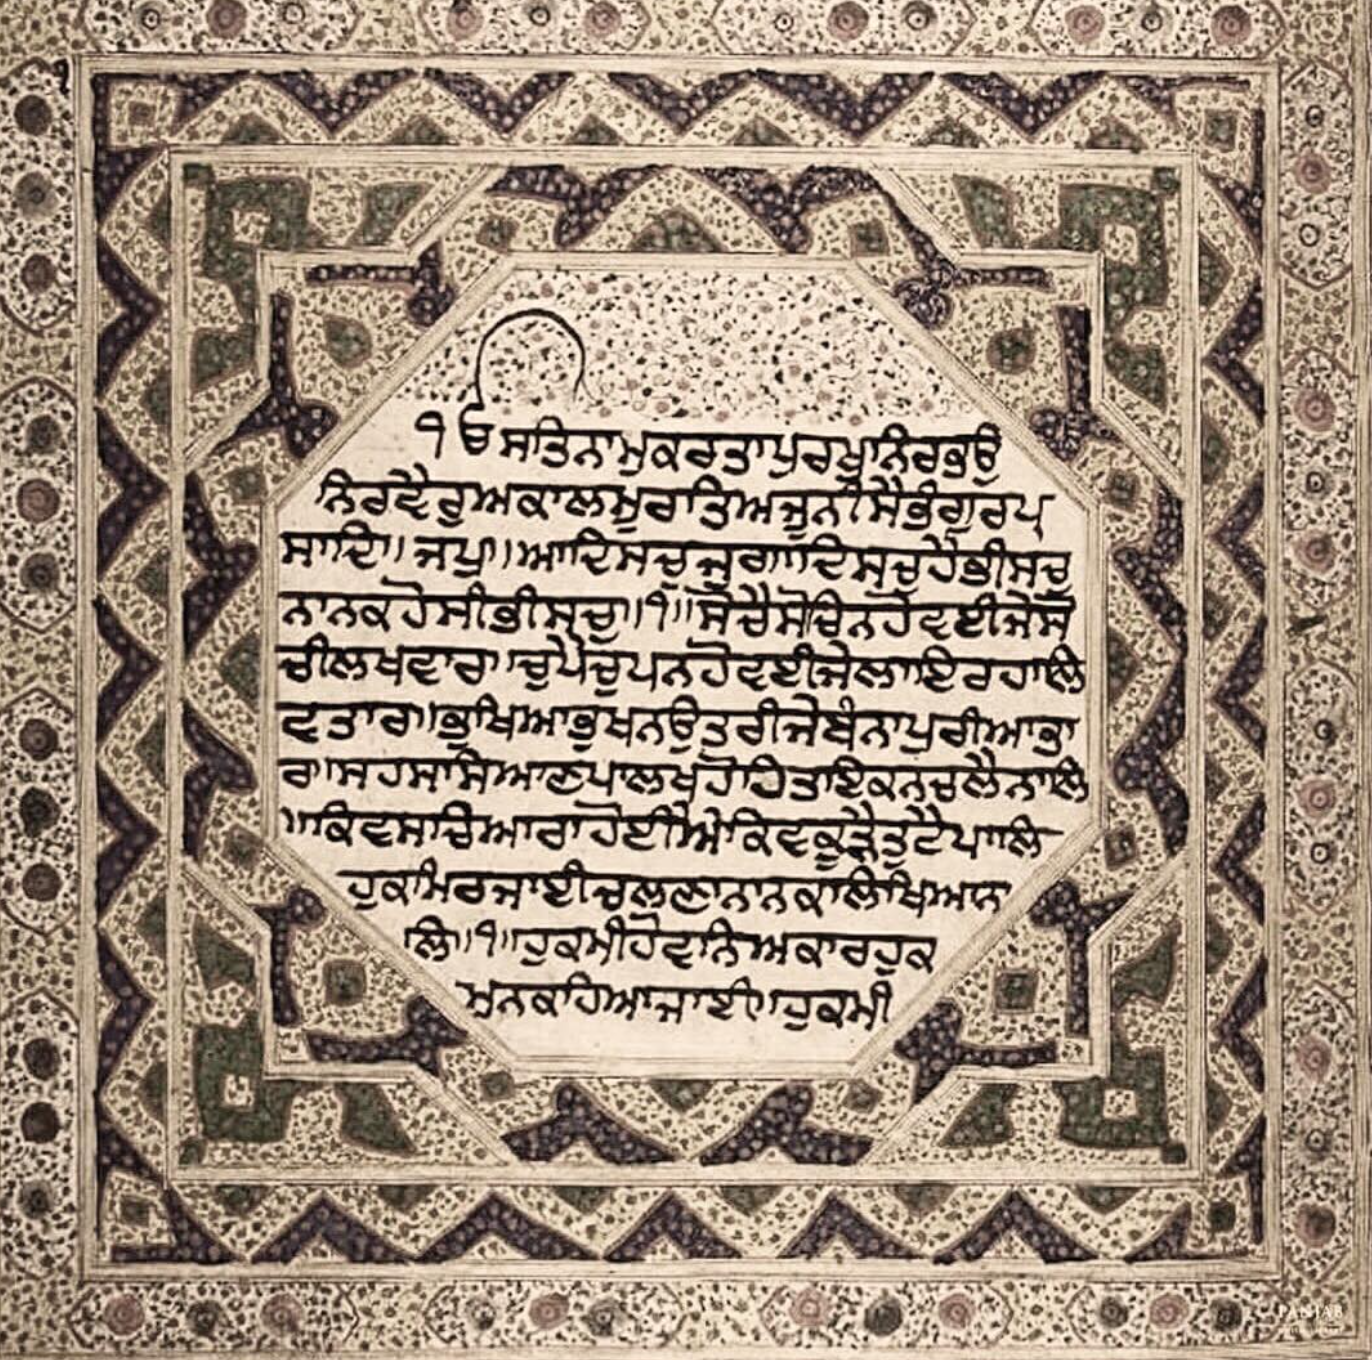 ੧ਓ ਸਤਿਨਾਮੁਕਰਤਾਪੁਰਖੁਨਿਰਭਉ
ਨਿਰਵੈਰੁਅਕਾਲਮੂਰਤਿਅਜੂਨੀਸੈਭੰਗੁਰਪ੍ਰ
ਸਾਦਿ॥ਜਪੁ॥ਆਦਿਸਚੁਜੁਗਾਦਿਸਚੁਹੈਭੀਸਚੁ
ਨਾਨਕਹੋਸੀਭੀਸਚੁ॥੧॥ਸੋਚੈਸੋਚਿਨਹੋਵਈਜੇਸੋ
ਚੀਲਖਵਾਰ॥ਚੁਪੈਚੁਪਨਹੋਵਈਜੇਲਾਇਰਹਾਲਿ
ਵਤਾਰ॥ਭੁਖਿਆਭੁਖਨਉਤਰੀਜੇਬੰਨਾਪੁਰੀਆਭਾ
ਰ॥ਸਹਸਸਿਆਣਪਾਲਖਹੋਹਿਤਾਇਕਨਚਲੈਨਾਲਿ
॥ਕਿਵਸਚਿਆਰਾਹੋਈਐਕਿਵਕੂੜੈਤੁਟੈਪਾਲਿ
ਹੁਕਮਿਰਜਾਈਚਲਣਾਨਾਨਕਲਿਖਿਆਨਾ
ਲਿ॥੧॥ਹੁਕਮੀਹੋਵਨਿਅਕਾਰਹੁਕ
ਮੁਨਕਹਿਆਜਾਈ॥ਹੁਕਮੀ
PANJAB